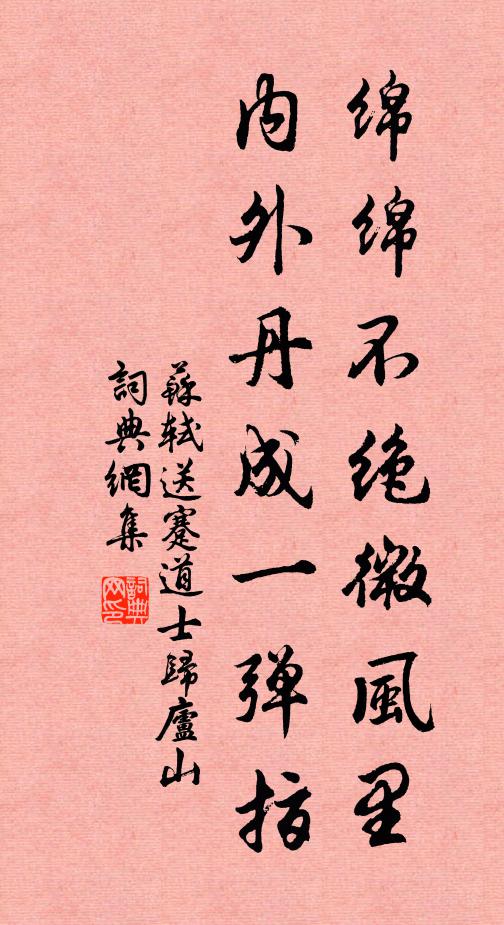 绵绵不绝微風里
内外丹成一弹指
蘇轼送蹇道士歸廬山
詞典網集
詞典网印